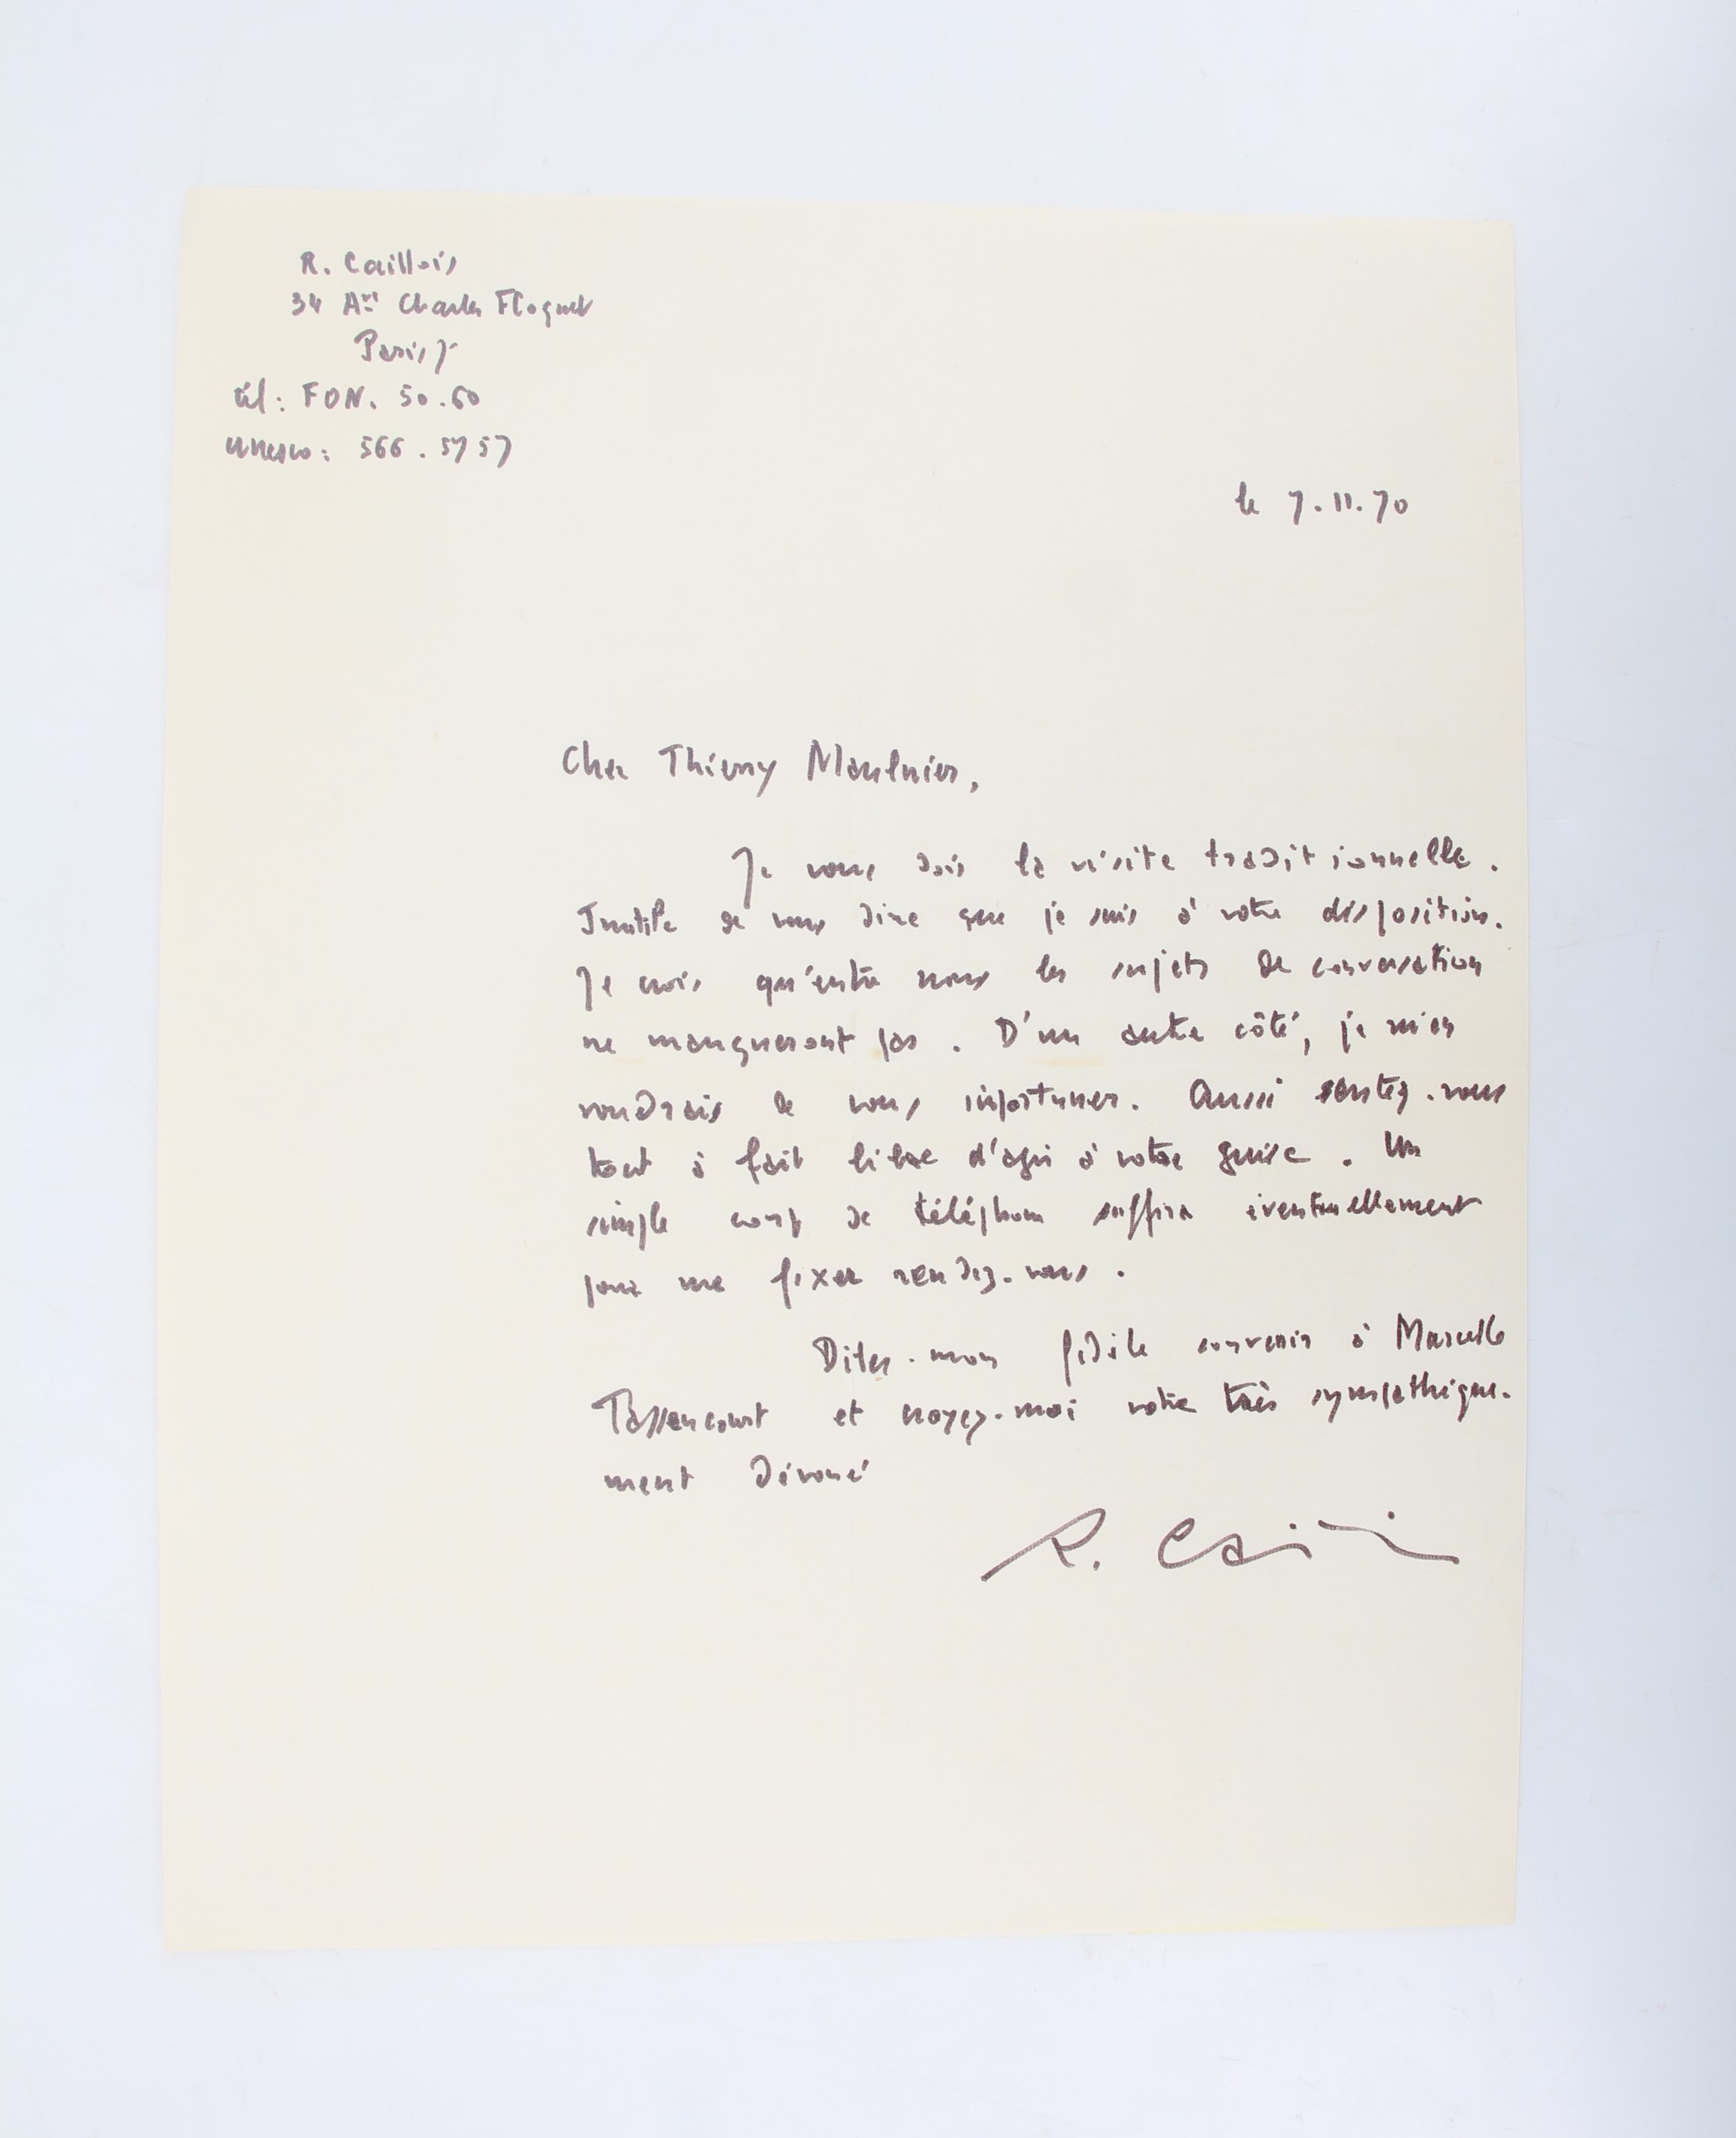 R. Caillois
34 Av. Charles Floquet
Paris 7
tél : FON. 50.60
Unesco : 566.5757
le 7.11.70
Cher Thierry Maulnier,
Je vous dois la visite traditionnelle.
Inutile de vous dire que je suis à votre disposition.
Je crois qu'entre nous les sujets de conversation
ne manqueront pas. D'un autre côté, je m'en
voudrais de vous importuner. Aussi sentez-vous
tout à fait libre d'agir à votre guise. Un
simple coup de téléphone suffira éventuellement
pour me fixer rendez-vous.
Dites mon fidèle souvenir à Marcelle
Tassencourt et croyez-moi votre très sympathique-
ment dévoué
R. Caillois